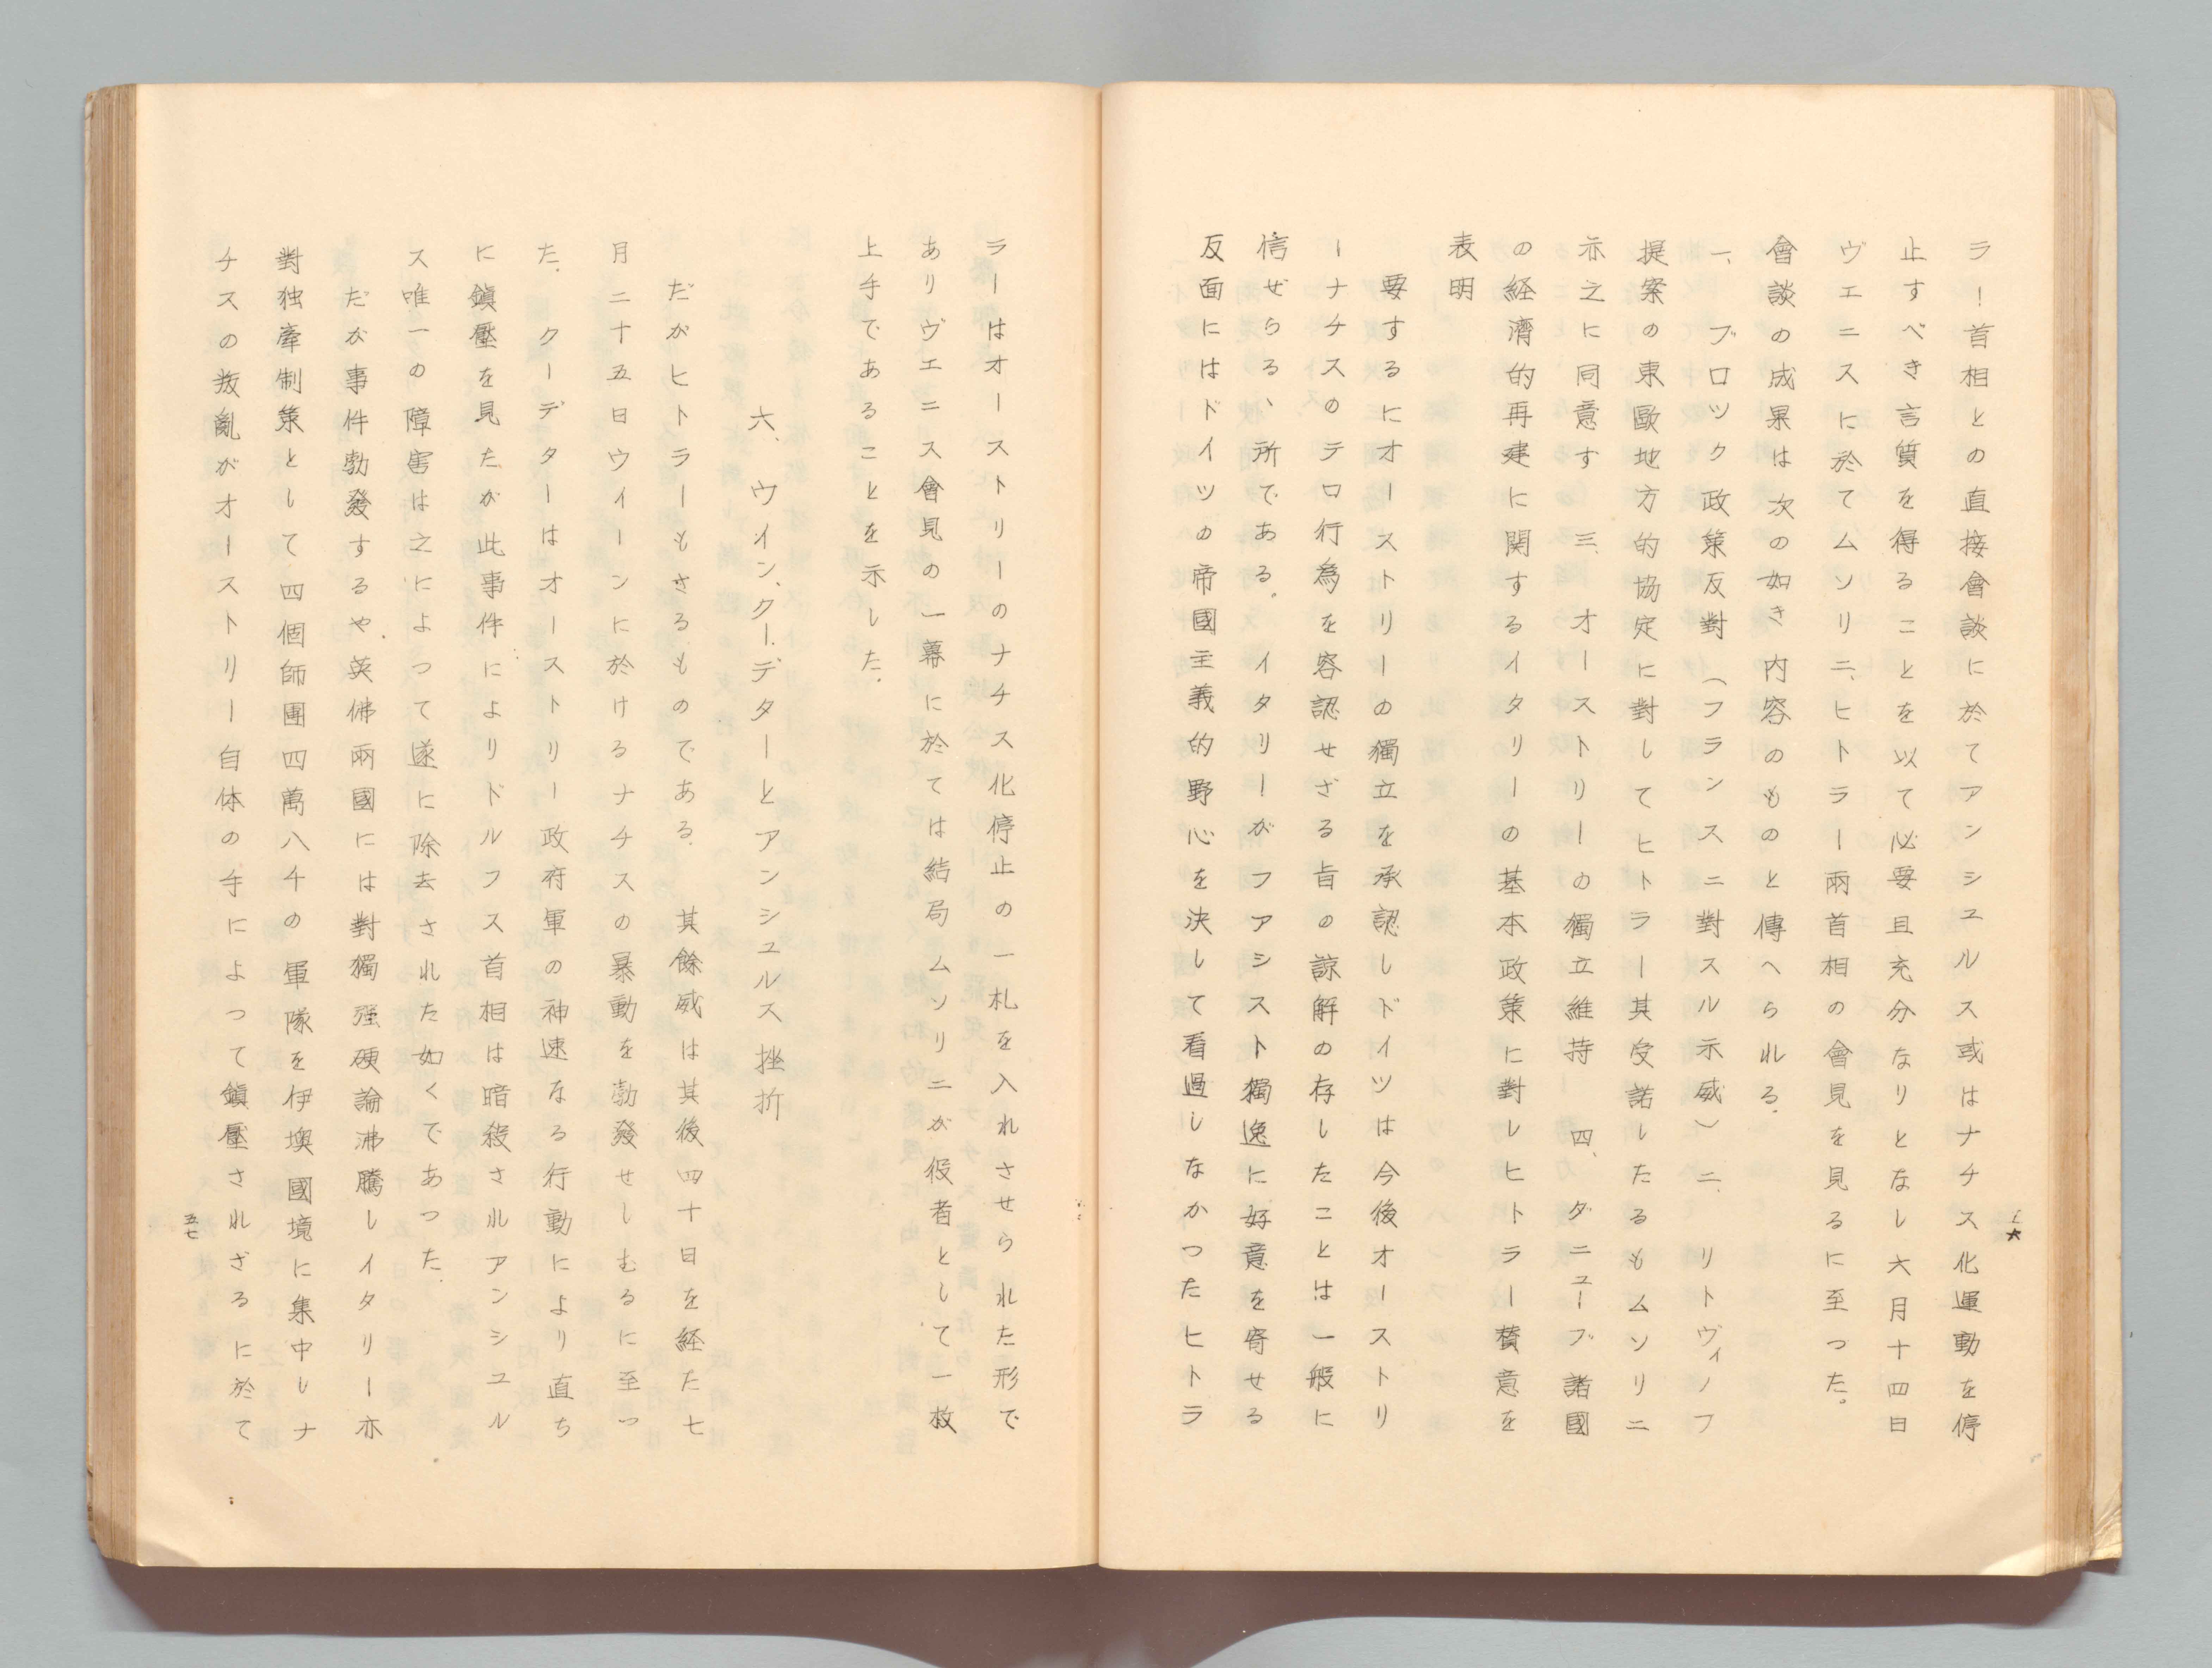 ラー首相との直接會談に於てアンシユルス或はナチス化運動を停
止すべき言質を得ることを以て必要且充分なりとなし六月十四日
ヴエニスに於てムソリニ、ヒトラー兩首相の會見を見るに至つた。
會談の成果は次の如き内容のものと傳へられる.
一、ブロツク政策反對(フランスニ對スル示威)二.リトヴィノフ
提案の東歐地方的協定に對してヒトラー其受諾したるもムソリニ
亦之に同意す 三.オーストリーの獨立維持 四、ダニューブ諸國
の経濟的再建に関するイタリーの基本政策に對しヒトラー賛意を
表明
要するにオーストリーの獨立を承認しドイツは今後オーストリ
ーナチスのテロ行為を容認せざる旨の諒解の存したことは一般に
信ぜらるゝ所である.イタリーがフアシスト獨逸に好意を寄せる
反面にはドイツの帝國主義的野心を決して看過しなかつたヒトラ
ラーはオーストリーのナチス化停止の一札を入れさせられた形で
ありヴエニス會見の一幕に於ては結局ムソリニが役者として一枚
上手であることを示した.
六、ウイン、クー.デターとアンシユルス挫折
だがヒトラーもさるものである.其餘威は其後四十日を経た七
月二十五日ウイーンに於けるナチスの暴動を勃發せしむるに至つ
た.クーデターはオーストリー政府軍の神速なる行動により直ち
に鎭壓を見たが此事件によりドルフス首相は暗殺されアンシユル
ス唯一の障害は之によつて遂に除去された如くであつた.
だが事件勃發するや.英佛兩國には對獨強硬論沸騰しイタリー亦
對独牽制策として四個師團四萬八千の軍隊を伊墺國境に集中しナ
チスの叛亂がオーストリー自体の手によつて鎭壓されざるに於て
五七